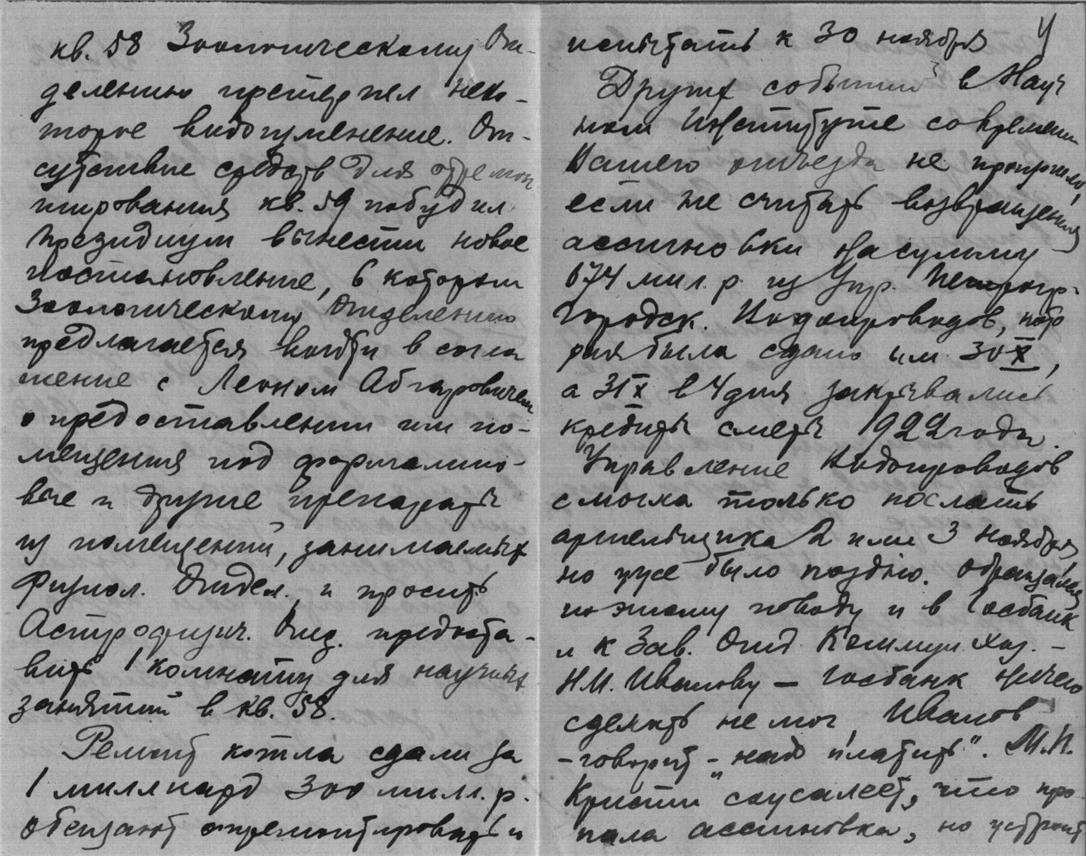 кв. 58 Зоологическому От-
делению претерпел неко-
торое видоизменение. От-
сутствие средств для отремон
тирования кв. 59 побудил
президиум вынести новое
постановление, в котором
Зоологическому Отделению
предлагается войти в согла
шение с Леоном Абгаровичем
о предоставлении им по-
мещения под формалино-
вые и другие препараты
из помещений, занимаемых
Физиол. Отдел. и просить
Астрофизич. Отд. предоста-
вить 1 комнату для научных
занятий в кв. 58.
Ремонт котла сдали за
1 миллиард 300 милл. р.
обещают отремонтировать и
испытать к 30 ноября
4
Других событий в Науч
ном Институте со времени
Вашего отъезда не произошло,
если не считать возвращения
ассигновки на сумму
674 мил. р. из Упр. Петрогр.
Городск. Водопроводов, кото
рая была сдано им 30 X,
а 31 X в 4 дня закрывались
кредиты сметы 1922 года.
Управление Водопроводов
смогла только послать
артельщика 2 или 3 ноября,
но уже было поздно. Обращались
по этому поводу и в Госбанк
и к Зав. Отд Коммун. Хоз. –
Н.И. Иванову – Госбанк ничего
сделать не мог, Иванов
– говорит – „надо платить". М.П.
Кристи сожалеет, что про-
пала ассигновка, но устроит